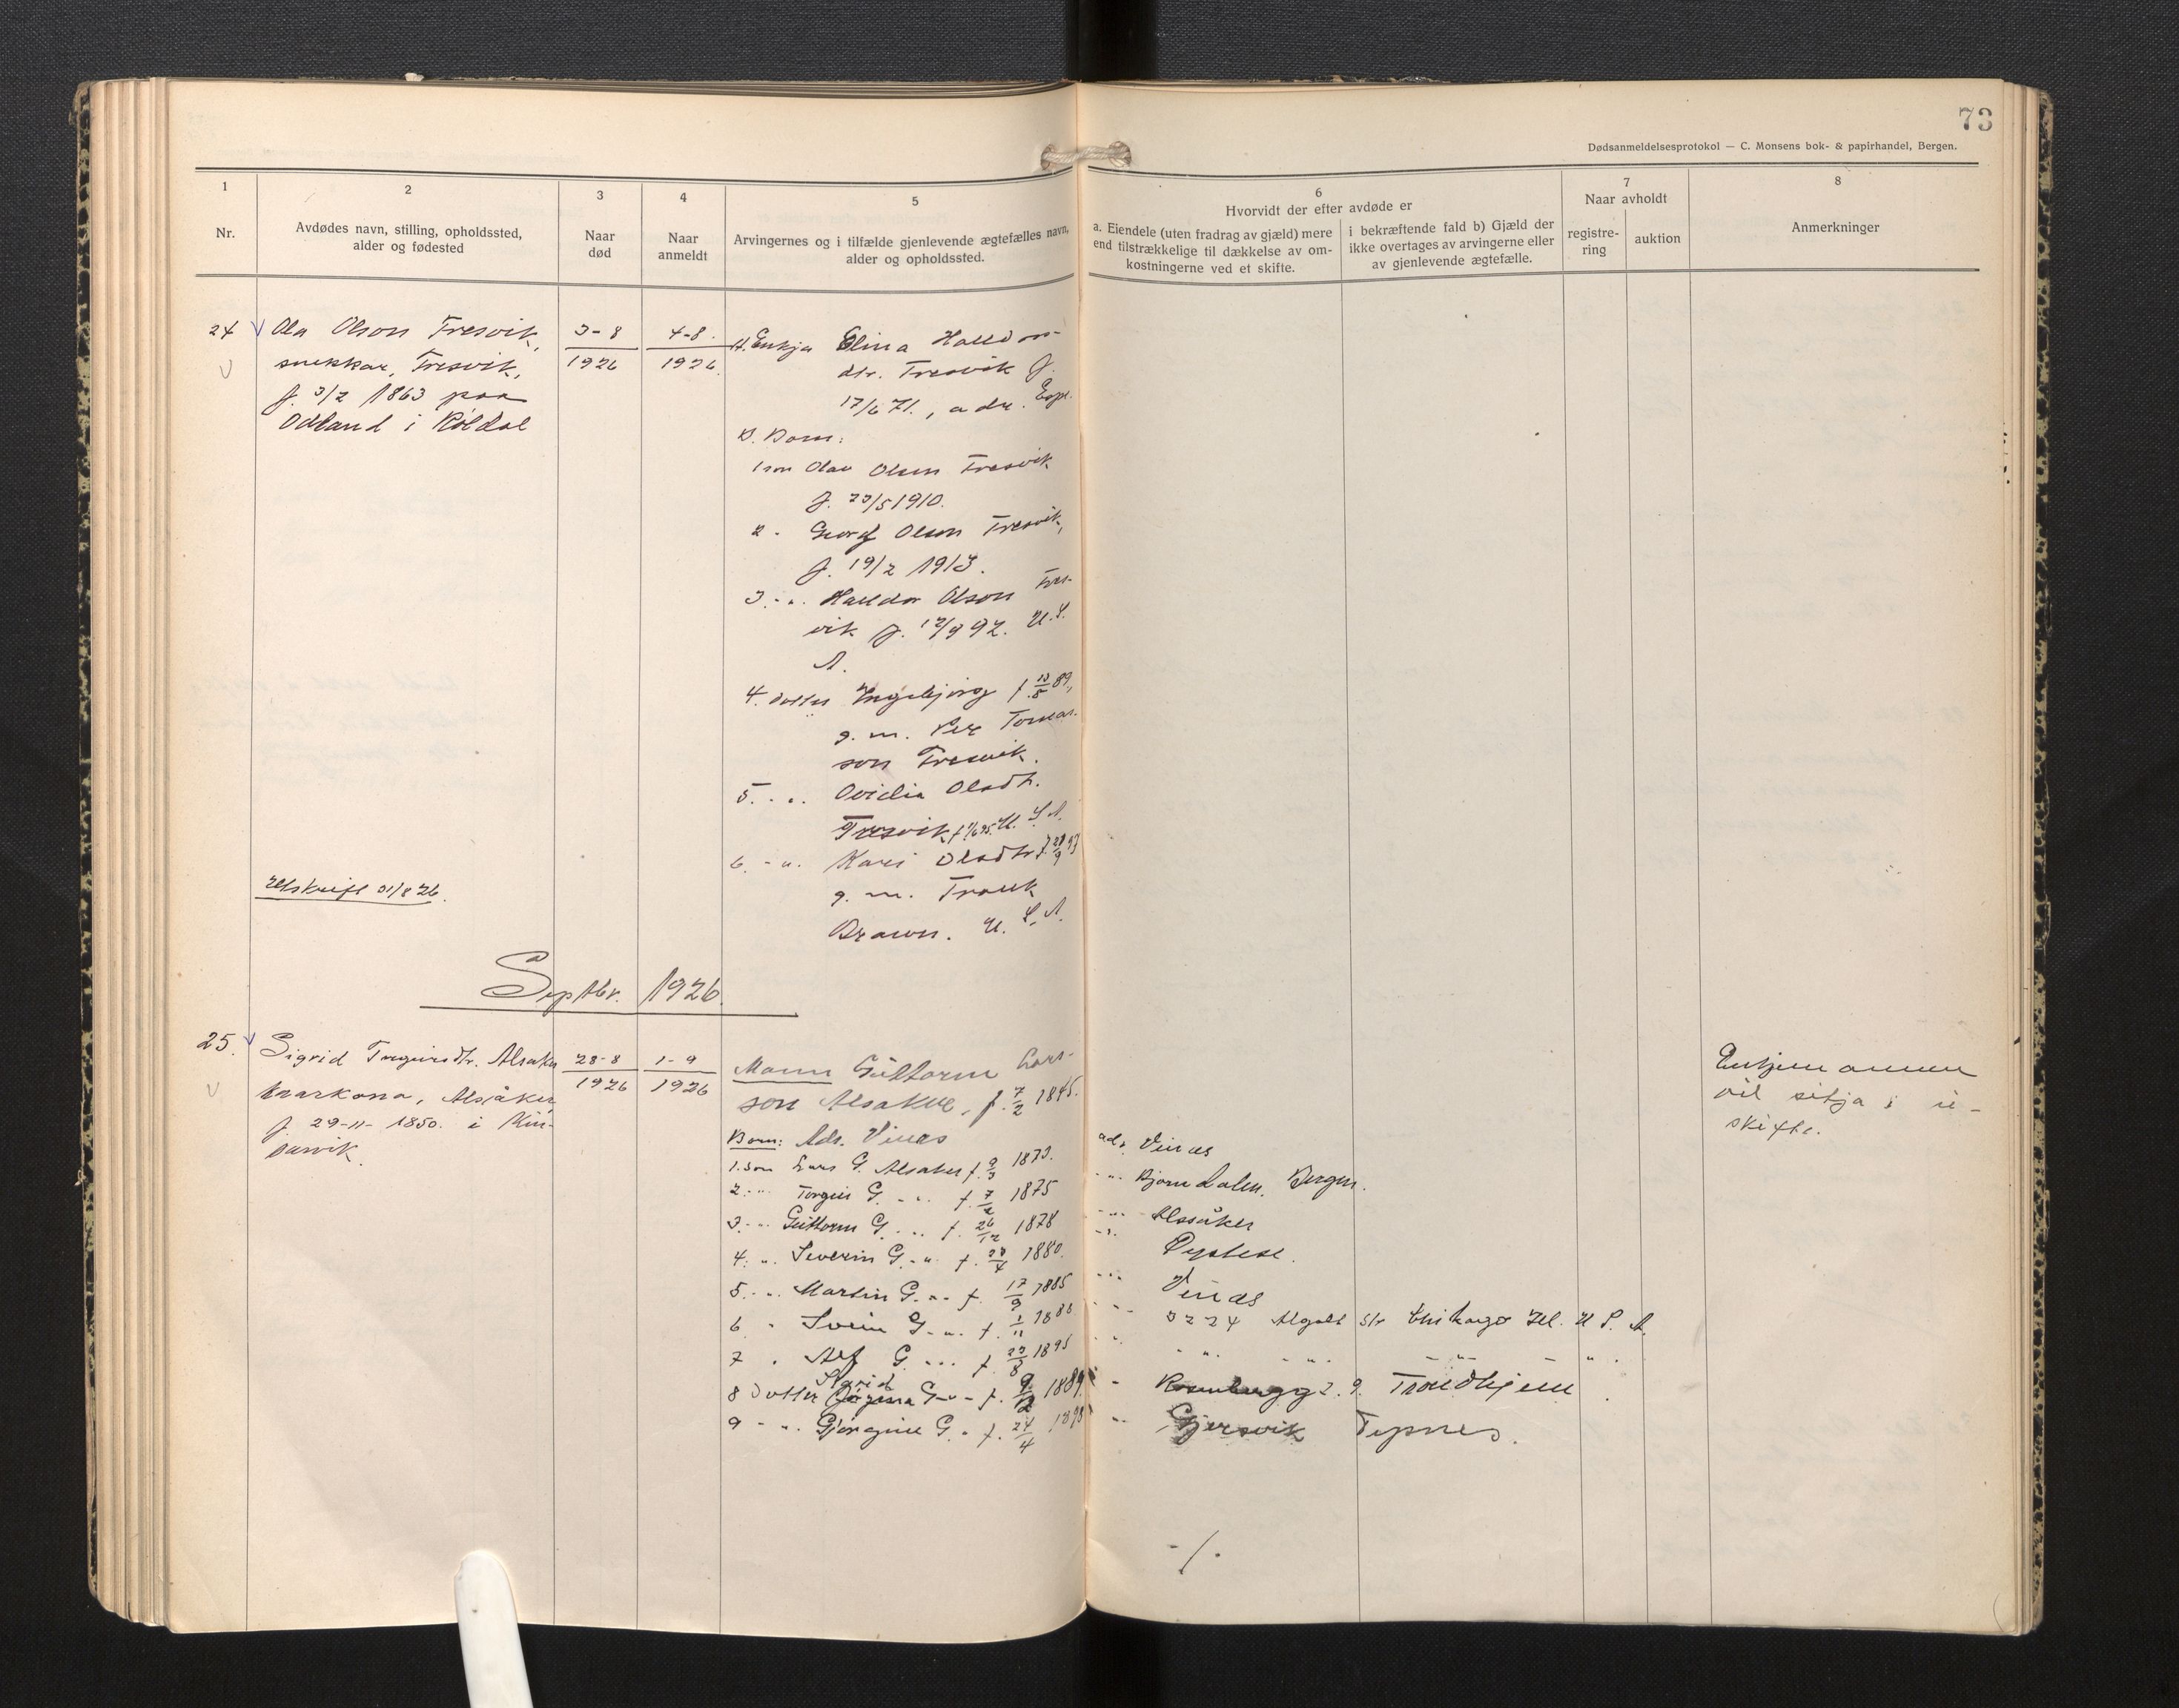 73
Dødsanmeldelsesprotokol — C. Monsens bok- & papirhandel, Bergen.
1
Nr.
2
Avdødes navn, stilling, opholdssted,
alder og fødested
3
Naar
død
4
Naar
anmeldt
5
Arvingernes og i tilfælde gjenlevende ægtefælles navn,
alder og opholdssted.
6
Hvorvidt der efter avdøde er
a. Eiendele (uten fradrag av gjæld) mere
end tilstrækkelige til dækkelse av om-
kostningerne ved et skifte.
i bekræftende fald b) Gjæld der
ikke overtages av arvingerne eller
av gjenlevende ægtefælle.
7
Naar avholdt
registre-
ring
auktion
8
Anmerkninger
24
Ola Olson Tresvik,
snekkar, Tresvik,
f. 3/2 1863 paa
Odland i Röldal
3-8
1926
4-8.
1926.
A. Enkja Elina Halldors-
dtr. Tresvik f.
17/6 71., adr. Espe.
B. Born:
1 son Olav Olson Tresvik
f. 23/5 1910.
2 - Georg Olson Tresvik,
f. 19/2 1913.
3. - " Halldor Olson Tres-
vik f. 12/9 92. U.S.
A.
4. dotter Ingebjørg f. 13/8 89,
g. m. Per Tomas-
son Tresvik.
5. - " Ovidia Olsdtr.
Tresvik f. 1/6 95. U. S. A.
6. - " Kari Olsdtr f. 28/9 97
g. m. Frank
Brawn. U. S. A.
Utskrift 31/8 26.
Septbr. 1926.
25.
Sigrid Torgeirsdtr. Alsaker
karkona, Alsåker,
f. 29-11- 1850. i Kin-
sarvik.
28-8
1926
1-9
1926
Mann Guttorm Lars-
son Alsaker, f. 7/2 1845.
Born: Adr. Vines
1. son Lars G. Alsaker f. 9/3 1873.
2. - " Torgeir G. - " f. 7/2 1875
3. - " Guttorm G. - " f. 26/12 1878
4. - " Severin G. - " f. 28/4 1880.
5. - " Martin G. - " f. 17/9 1885
6 - Svein G. - " f. 1/11 1888
7 - Alf G. - " f. 23/8 1895
Sigrid
8 Dotter G - " - f. 9/2 1889.
9 - " Gjörgine G. - f. 24/4 1898
adr. Vines
- " - Bjørndalen. Bergen.
- " - Alsåker
- " - Øystese.
- " - Vines
- " - 3224 Str Chikago Ill. U S. A.
- " - " - " -
- 2. g. Trondhjem.
- " Gjersvik Tysnes.
-/.
Enkjemannen
vil sitja i u-
skifte.